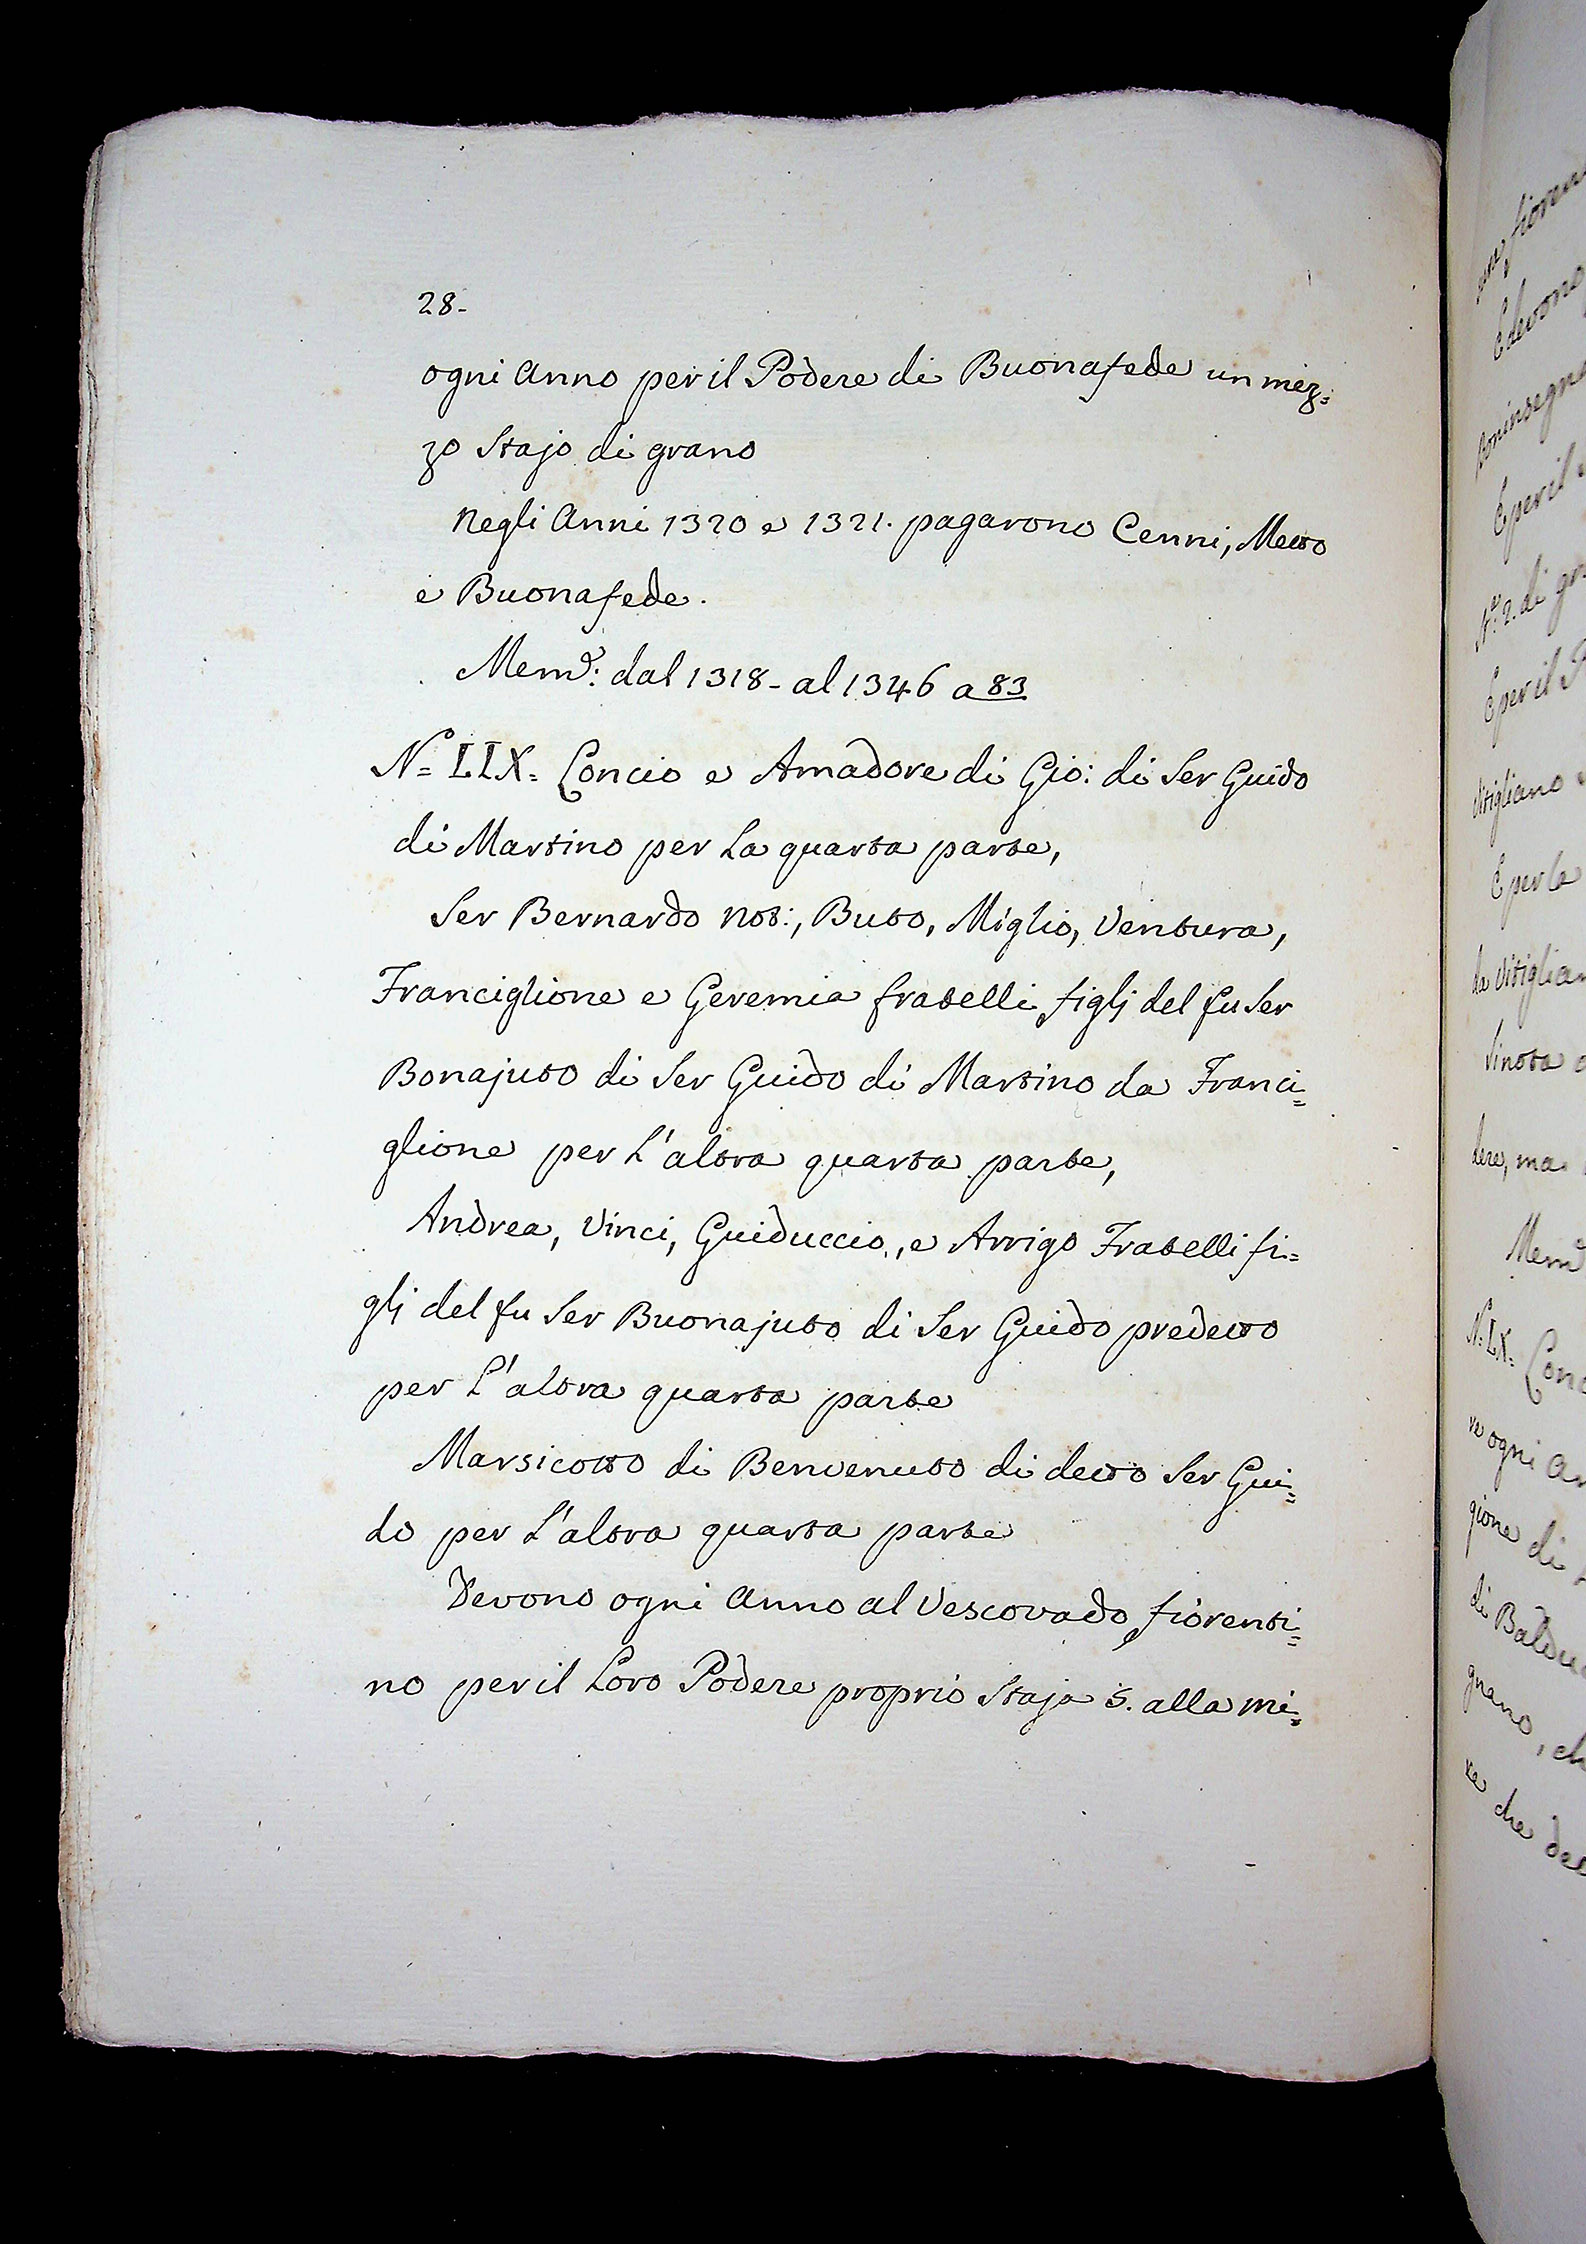 28-
ogni Anno per il Podere di Buonafede un mez=
zo Stajo di grano
Negli Anni 1320 e 1321. pagarono Cenni, Metto
e Buonafede.
Mem.e: dal 1318- al 1346 a 83
N= LIX= Concio e Amadore di Gio: di Ser Guido
di Martino per La quarta parte,
Ser Bernardo Not:, Buto, Miglio, Ventura,
Franciglione e Geremia fratelli figlj del fu Ser
Bonajuto di Ser Guido di Martino da Franci=
glione per L'altra quarta parte,
Andrea, Vinci, Guiduccio, e Arrigo Fratelli fi=
glj del fu Ser Buonajuto di Ser Guido predetto
per L'altra quarta parte
Marsicotto di Benvenuto di detto Ser Gui=
do per L'altra quarta parte
Devono ogni Anno al Vescovado fiorenti=
no per il Loro Podere proprio Staja 5. alla mi=
E devono
E per il
di gr
E per il P
Vitigliano
E per la
da Vitiglian
dere, ma
Mem
N= LX= Conc
re ogni An
gione di
di Baldu
grano, ch
re che de